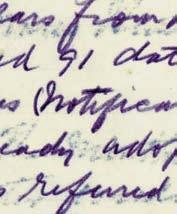 ears from
ed 91 dat
s (Notifica
eady adop
s referred